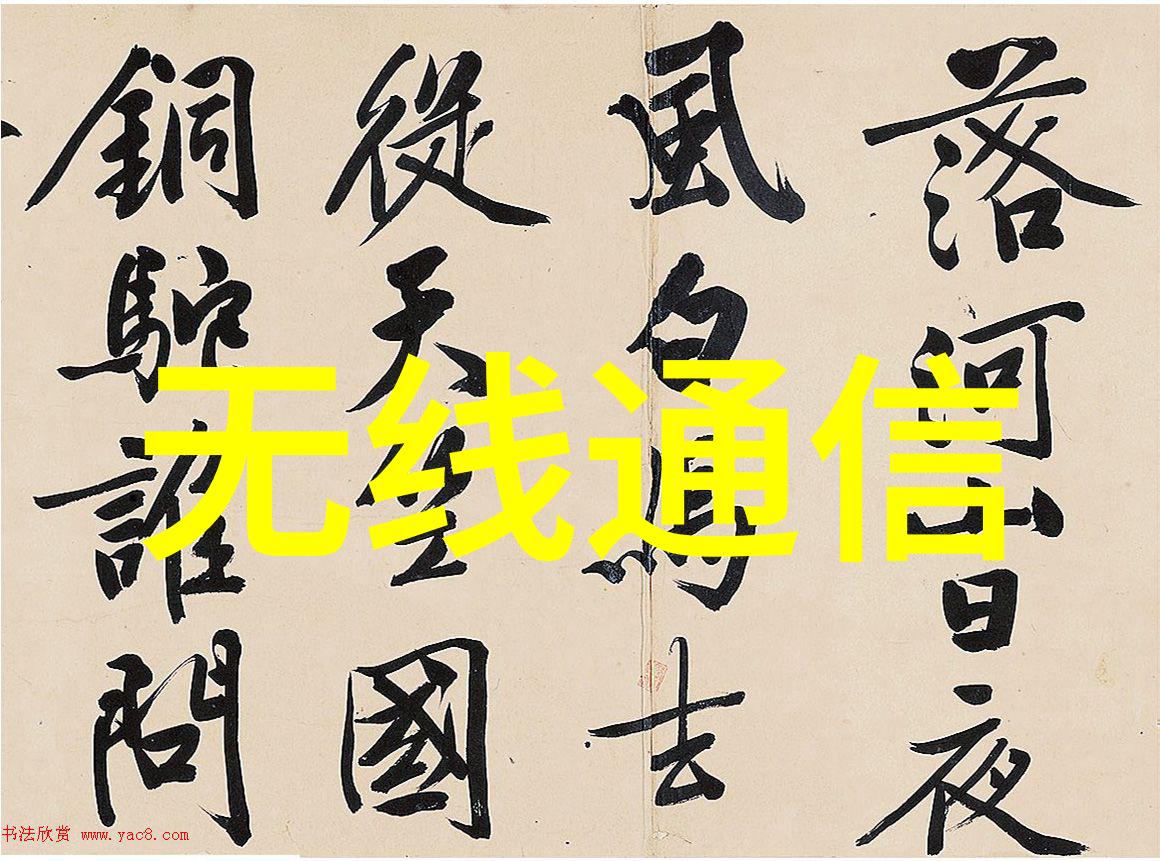 落河山日夜
風白馬去
從天竺國
銅駝誰問
无线通信
书法欣赏 www.yac8.com